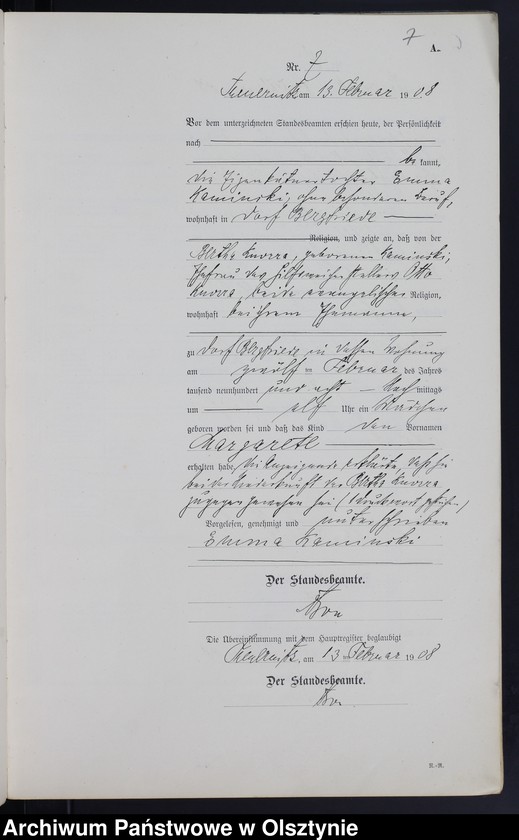 7
A.
Nr. 7
am 13. Februar 1908
Vor dem unterzeichneten Standesbeamten erschien heute, der Persönlichkeit
nach
be kannt,
die Eigenkätnertochter Emma
Kaminski, ohne besonderen Beruf,
wohnhaft in Dorf Bergfriede
Religion, und zeigte an, daß von der
Bertha Knorra, geborenen Kaminski,
Ehefrau des Hilfsweichenstellers Otto
Knorra, beide evangelischer Religion,
wohnhaft bei ihrem Ehemanne,
zu Dorf Bergfriede in dessen Wohnung
am zwölf = Februar des Jahres
tausend neunhundert und acht Nach mittags
um elf Uhr ein Mädchen
geboren worden sei und daß das Kind den Vornamen
Margarete
erhalten habe. Die Anzeigende erklärte, daß sie
bei der Niederkunft der Bertha Knorra
zugegen gewesen sei
Vorgelesen, genehmigt und unterschrieben
Emma Kaminski
Der Standesbeamte.
Die Übereinstimmung mit dem Hauptregister beglaubigt
am 13 Februar 1908
Der Standesbeamte.
R.-R.
Archiwum Państwowe w Olsztynie